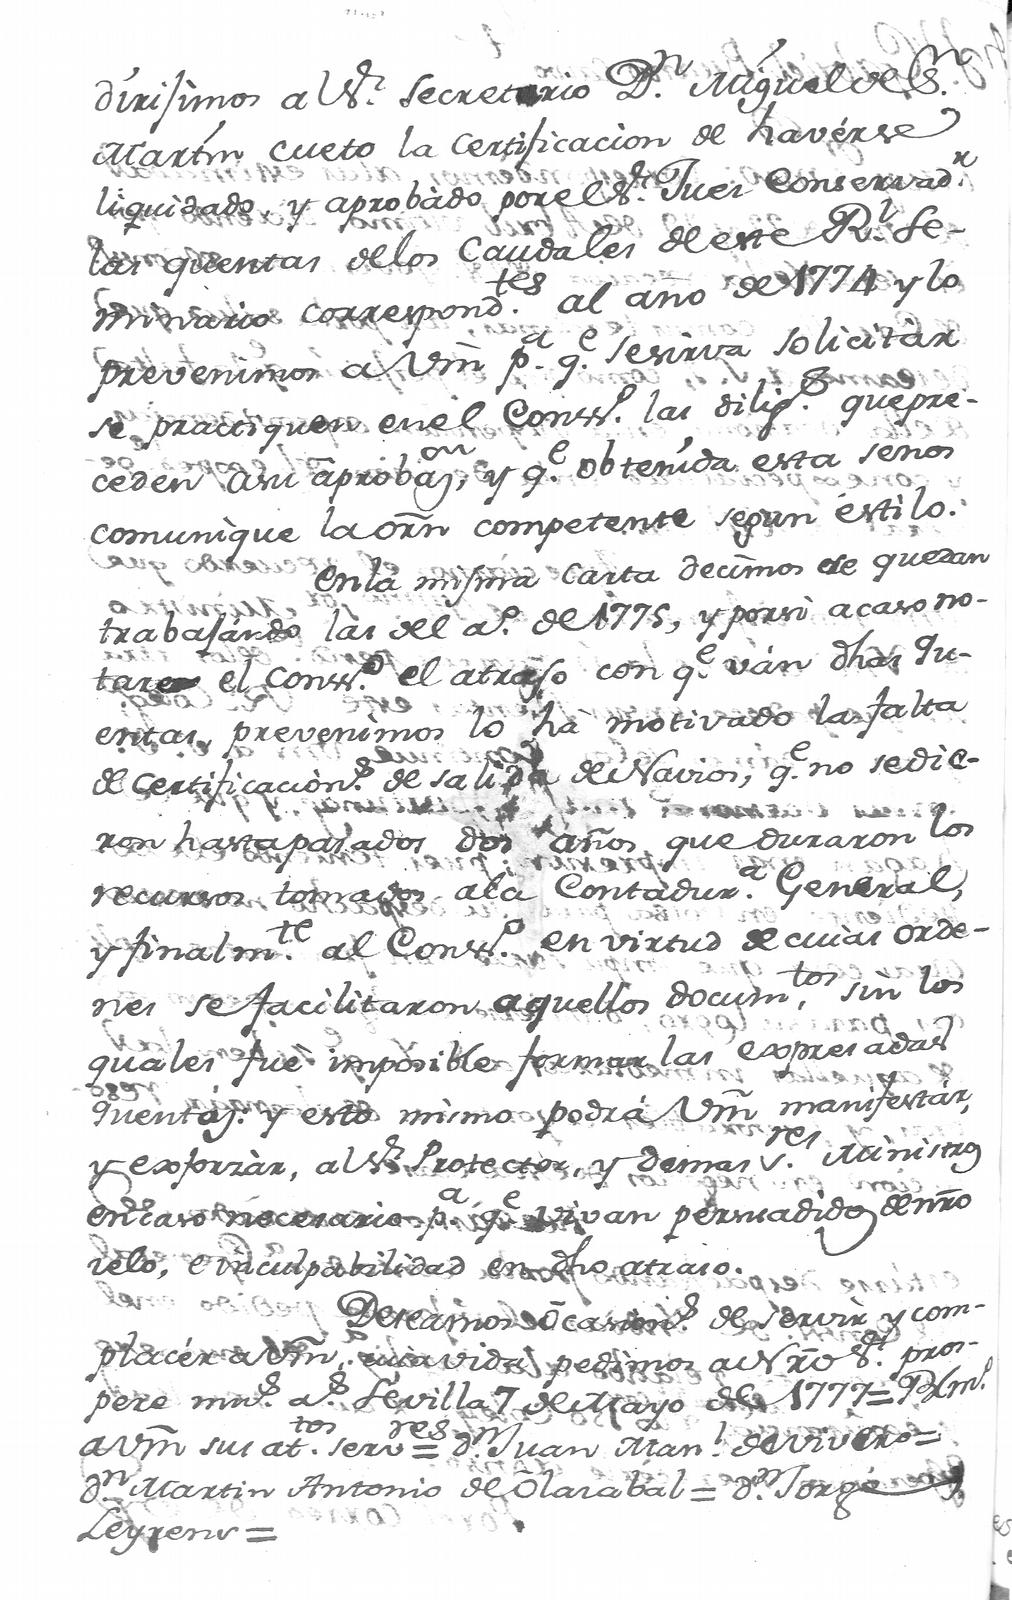 dirisimos al Sr. Secretario Dn. Miguel de Sn.
Martin Cueto la Certificacion de havérse
liquidado, y aprobado por el Sr. Juez Conservador.
las quentas de los Caudales de este Rl. Se-
minario correspondtes. al año de 1774 y lo
prevenimos a Vm̄ pa. qe. se sirva solicitár
se practiquen en el Conso. las diligs. que pre-
ceden a su aprobaon, y qe. obtenida esta se nos
comunique la orn̄ competente segun éstilo.
En la misma Carta decimos se quedan
trabajándo las del ao. de 1775, y por si acaso no-
tare el Conso. el atraso con qe. ván dhas Qu-
entas, prevenimos lo ha motivado la falta
de Certificacions. de salida de Navios, qe. no se die-
ron hasta pasados dos años que duraron los
recursos tomados a la Contadura. General,
y finalmte. al Conso. en virtud de cuias orde-
nes se facilitaron aquellos documtos, sin los
quales fue imposible formar las expresadas
quentas: y esto mismo podrá Vm̄ manifestár,
y exforzàr, al Sr. Protector, y demas Sres. Ministros
en caso necesario pa. qe. vivan persuadidos de nr̄o
zelo, e inculpabilidad en dho atraso.
Deseamos ōcasions. de servir y com-
placér a Vm̄, cuia vida pedimos a Nr̄o Sr. pros-
pere ms. as. Sevilla 7 de Mayo de 1777 = Blm.
a Vm̄ sus attos. servres = Dn. Juan Manl. de Vivero =
Dn. Martin Antonio de Olazabal = Dn. Jorge
Leyrens =